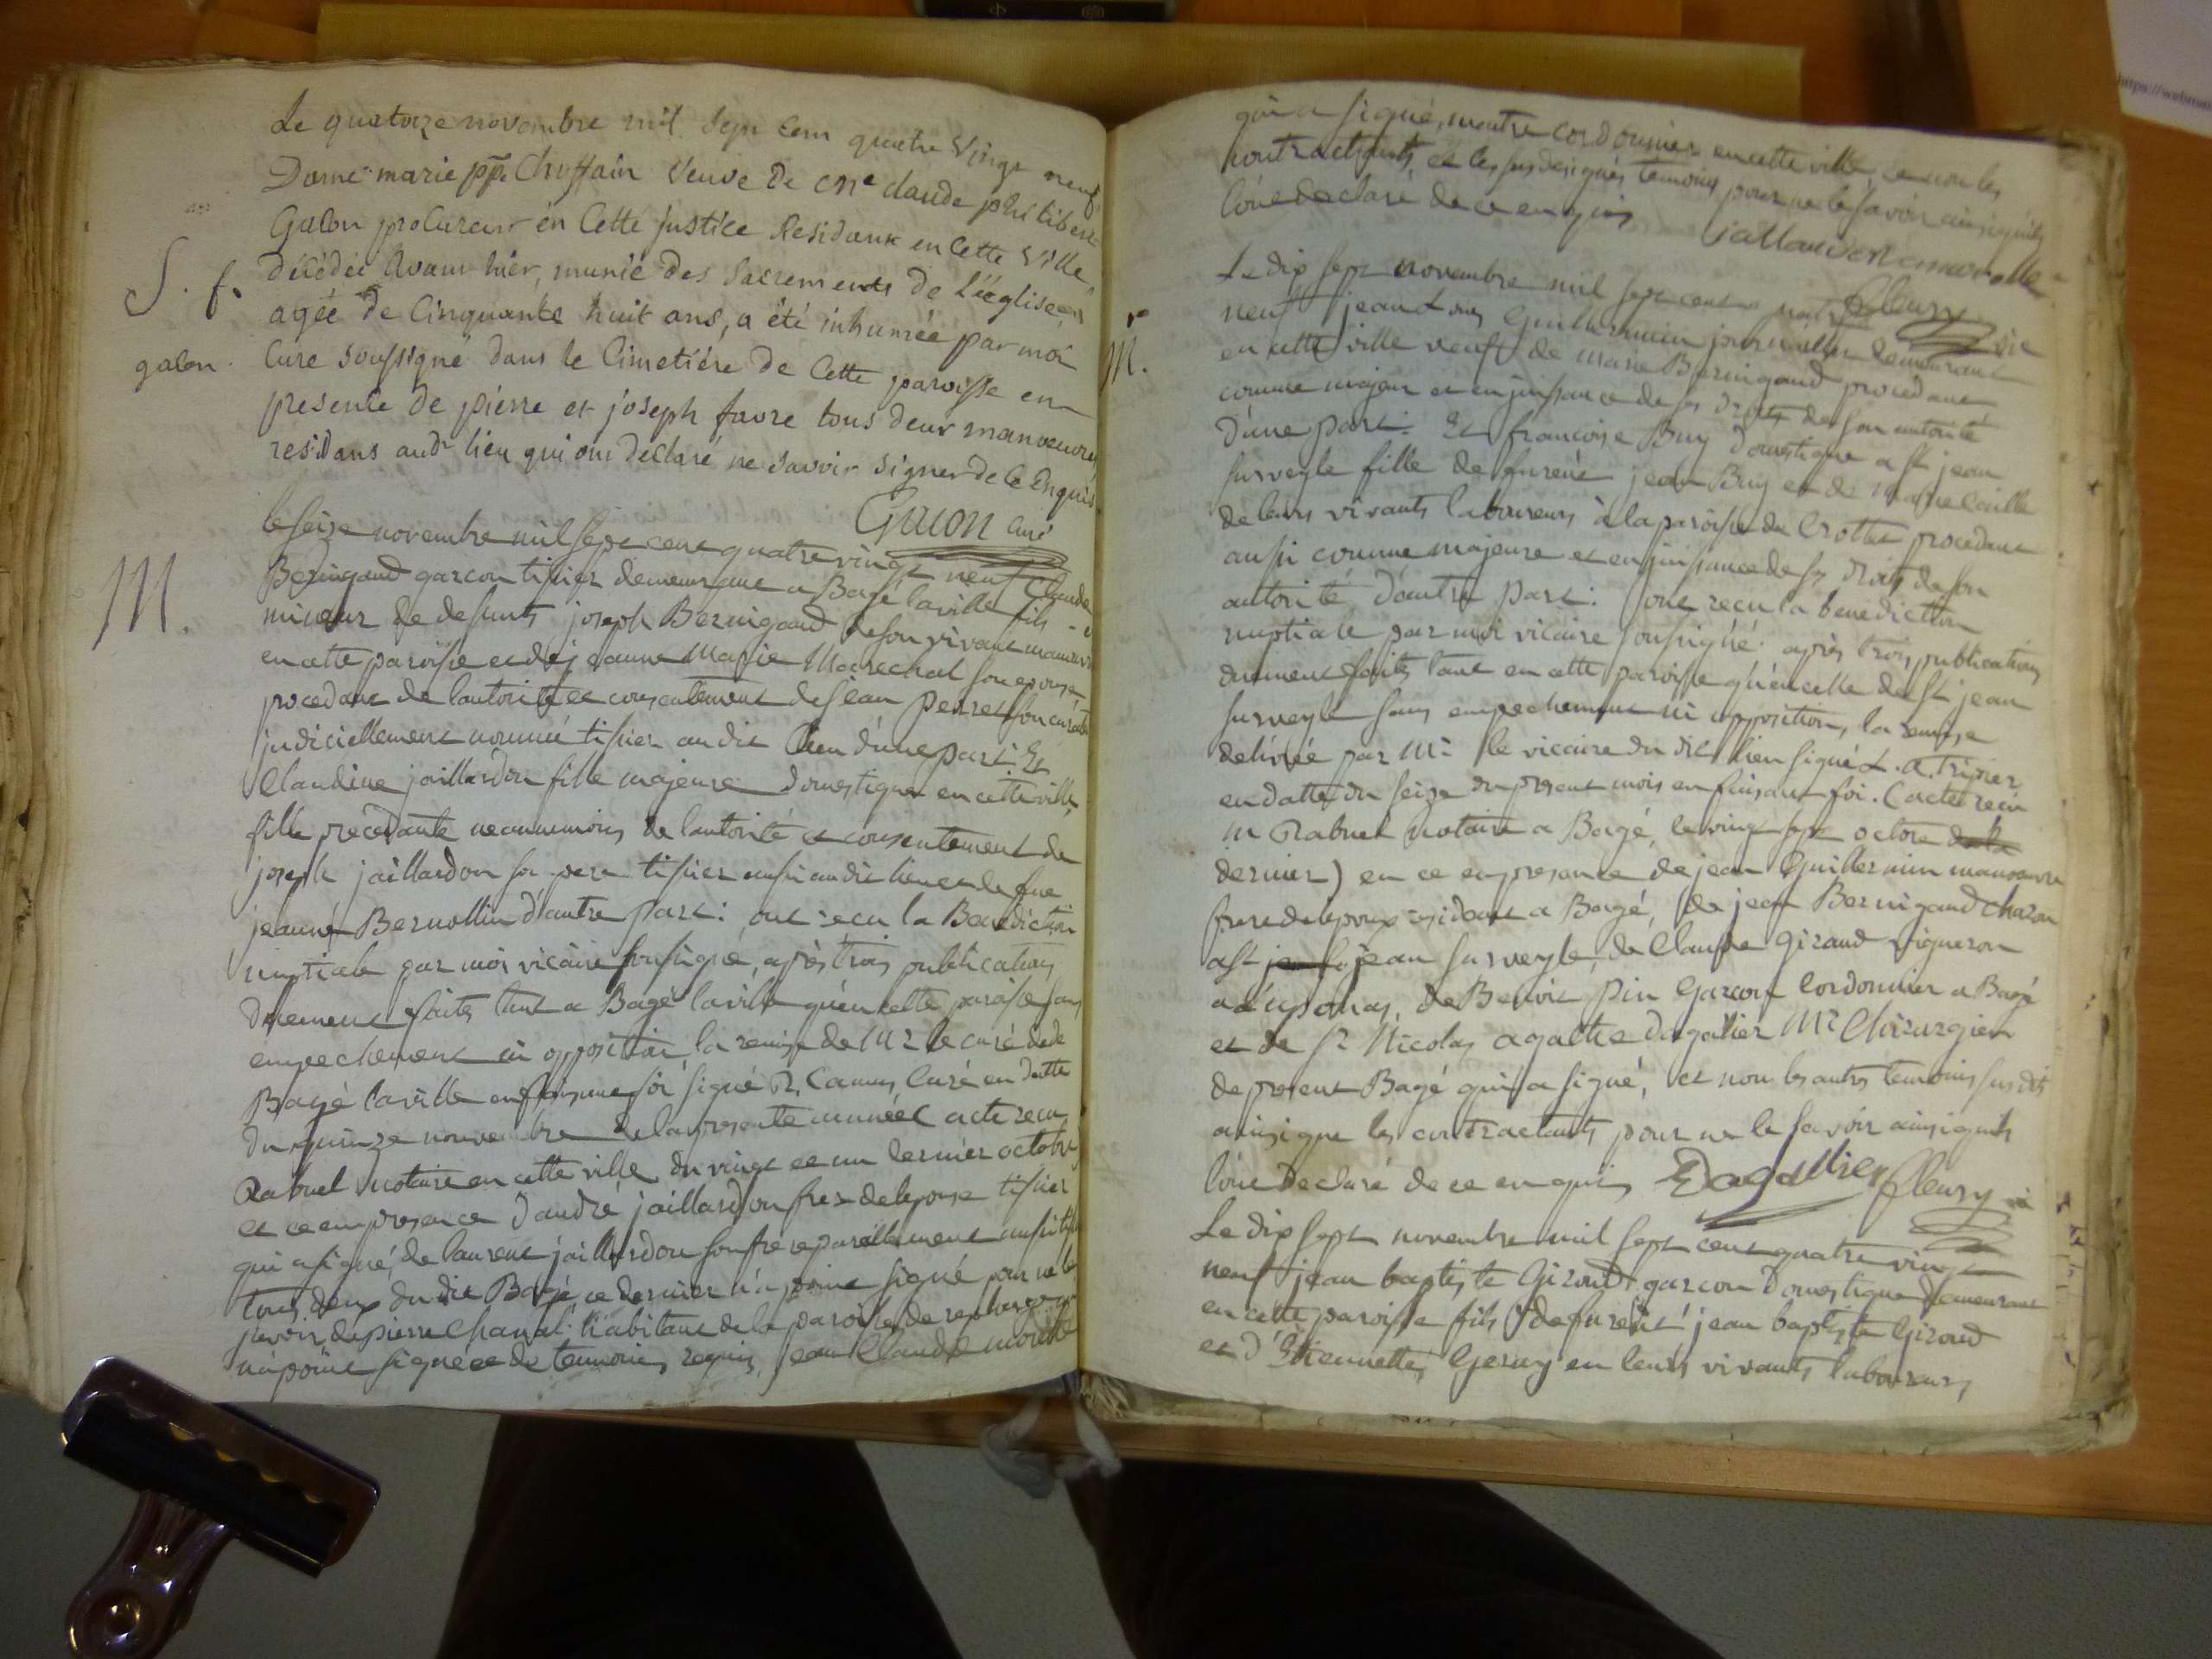 Le quatorze novembre mil sept cent quatre vingt neuf
Dame marie ppe Chuffain veuve de me claude philibert
Galon procureur en Cette justice Residant en Cette Ville
décédée avant hier, munie des Sacrements de L'église
S. f.
agée de Cinquante huit ans, a été inhumée par moi
galon.
Curé soussigné dans le Cimetiére de Cette paroisse en
presence de pierre et joseph favre tous deux manoeuvres
residans audt lieu qui ont déclaré ne savoir signer de Ce Enquis
Gacon curé
M.
le seize novembre mil sept cent quatre vingt neuf Claude
Bernigaud garcon tissier demeurant a Bagé la ville fils
mineur de defunts joseph Bernigaud de son vivant manoeuvre
en cette paroisse et de jeanne Marie Marechal son epouse
procedant de lautorité et consentement de jean Perret son curateur
judiciellement nommé tissier au dit lieu d'une part. Et
Claudine jaillardon fille majeure domestique en cette ville,
fille procedante neanmoins de lautorité et consentement de
joseph jaillardon son pere tissier aussi au dit lieu et de fue
jeanne Bernollin d'autre part: ont recu la Benediction
nuptiale par moi vicaire soussigné, après trois publications
duement faites tant a Bagé laville qu'en cette paroisse sans
empechement ni opposition, la remise de Mr le curé de
Bagé laville en faisant foi signé R. Camus Curé en datte
du quinze nouvembre de la presente année (acte recu
Rabuel notaire en cette ville du vingt et un dernier octobre
et ce en presence d'andré jaillardon frere de lepouse tissier
qui a signé, de laurent jaillardon son frere pareillement aussi tissier
tous deux du dit Bagé, ce dernier n'a point signé pour ne le
savoir, de pierre Chanal habitant de la paroisse de replonge qui
n'a point signé et de temoins requis, jean Claude morelle
qui a signé, maitre cordonnier en cette ville, et non les
contractants, et les sus designés temoins pour ne le savoir ainsi qu'ils
l'ont declaré de ce enquis jallaudon morelle
fleury vic
M.
Le dix sept novembre mil sept cent quatre
neuf jean Louis Guillermin journalier demeurant
en cette ville veuf de marie Bernigaud procedant
comme majeur et en jouissance de ses droits de son autorité
d'une part: Et francoise Buy domestique a st jean
surveyle fille de furent jean Buy et de marie Caille
de leurs vivants laboureurs à la paroisse de Crottet procedant
aussi comme majeure et en jouissance de ses droits de son
autorité d'autre part: ont recu la benediction
nuptiale par moi vicaire soussigné: après trois publications
duement faites tant en cette paroisse qu'en celle de st jean
surveyle sans empechement ni opposition, la remise
delivrée par Mr le vicaire du dit lieu signé L. A. Tripier
en datte du seize du present mois en faisant foi. (acte recu
m Rabuel notaire a Bagé, le vingt sept octobre
dernier) en ce en presence de jean Guillermin manoeuvre
frere de lepoux residant a Bagé, de jean Bernigaud charon
a st jean surveyle, de Claude Giraud vigneron
a de Benoit Pin Garcon Cordonnier a Bagé
et de sr Nicolas agathe dagallier Mr Chirurgien
de present Bagé qui a signé, et non les autres temoins sus dits
ainsi que les contractants pour ne le savoir ainsi qu'ils
l'ont declaré de ce enquis Dagallier fleury
Le dix sept novembre mil sept cent quatre vingt
neuf jean baptiste Giroud garcon domestique demeurant
en cette paroisse fils de furent jean baptiste Giroud
et d'Etiennette Geray en leurs vivants laboureurs